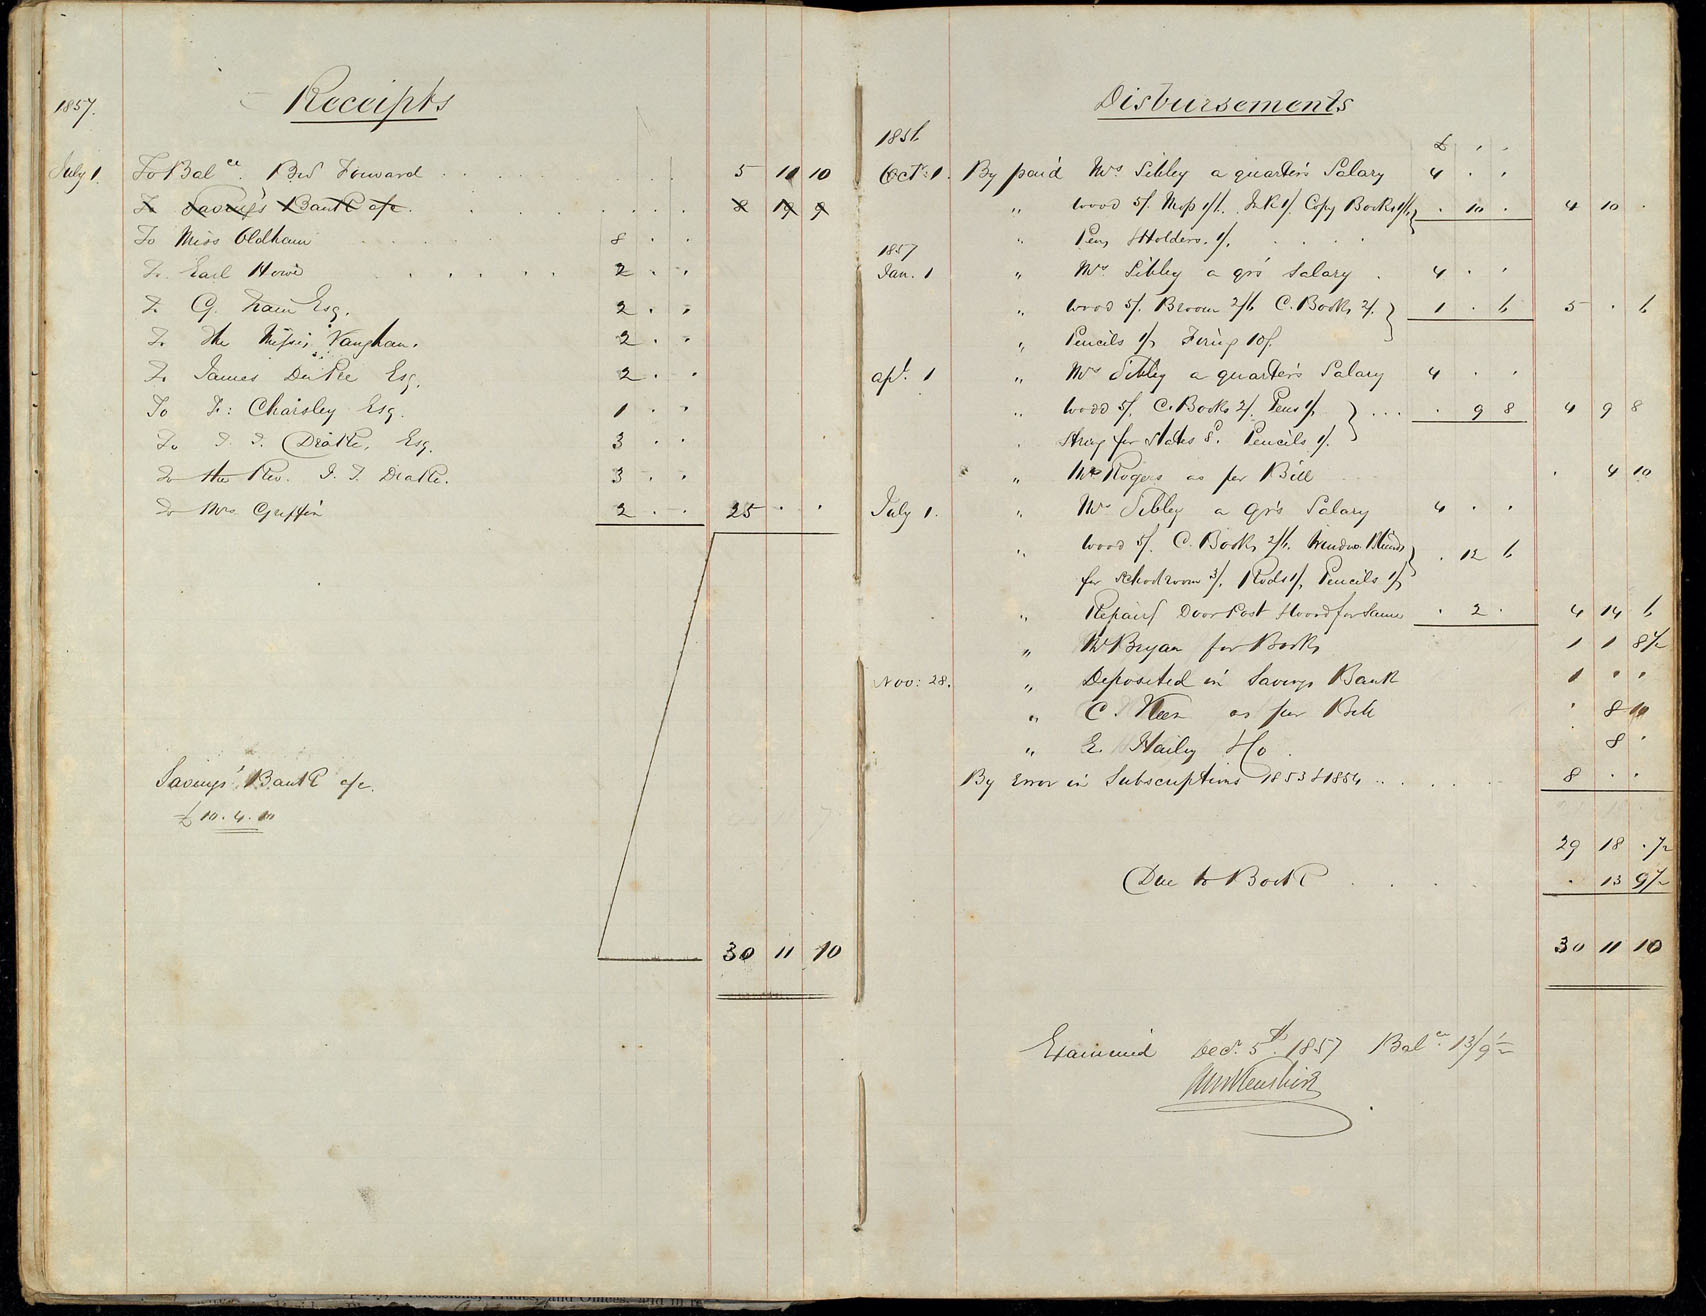 Receipts
1857.
July 1. To Balce. Brd Forward 5 11 10
To Savings Bank a/c. 8 19 9
To Miss Oldham 8 . .
To Earl Howe 2 . .
To G. Esq. 2 . .
To The Misses Vaughan. 2 . .
To James DuPre Esq. 2 . .
To F: Charsley Esq. 1 . .
To T. T. Drake, Esq. 3 . .
To the Rev. J. T. Drake. 3 . .
To Mrs. Griffin 2 . . 25 . .
Savings' Bank a/c.
£10.4.10
30 11 10
Disbursements
1856
£ . .
Oct: 1. By paid Mrs Sibley a quarter's Salary 4 . .
" Wood 5/. Mop 1/6. Ink 1/. Copy Books 1/6 } . 10 . 4 10 .
" Pens & Holders. 1/.
1857
Jan. 1 " Mrs Sibley a qrs Salary . 4 . .
" Wood 5/. Broom 2/6 C. Books 2/. } 1 . 6 5 . 6
" Pencils 1/, Firing 10/.
Apl. 1 " Mrs Sibley a quarter's Salary 4 . .
" Wood 5/. C. Books 2/. Pens 1/, } . 9 8 4 9 8
" String for Slates 8d. Pencils 1/.
" Mr Rogers as per Bill . 4 10
July 1. " Mrs Sibley a qrs Salary 4 . .
" Wood 5/. C. Books 2/6. Window Blinds } . 12 6
for Schoolroom 3/. Rods 1/, Pencils 1/,
" Repairs Door Post & Wood for Same . 2 . 4 14 6
" Mr Bryan for Books 1 1 8½
Nov: 28. " Deposited in Savings Bank 1 . .
" C. Keen as per Bill . 8 10
" E. Hailey Do. . 8 .
By Error in Subscriptions 1853 & 1854 8 . .
29 18 . ½
Due to Book . 13 9½
30 11 10
Examined Decr. 5th. 1857 Balce. 13/9½